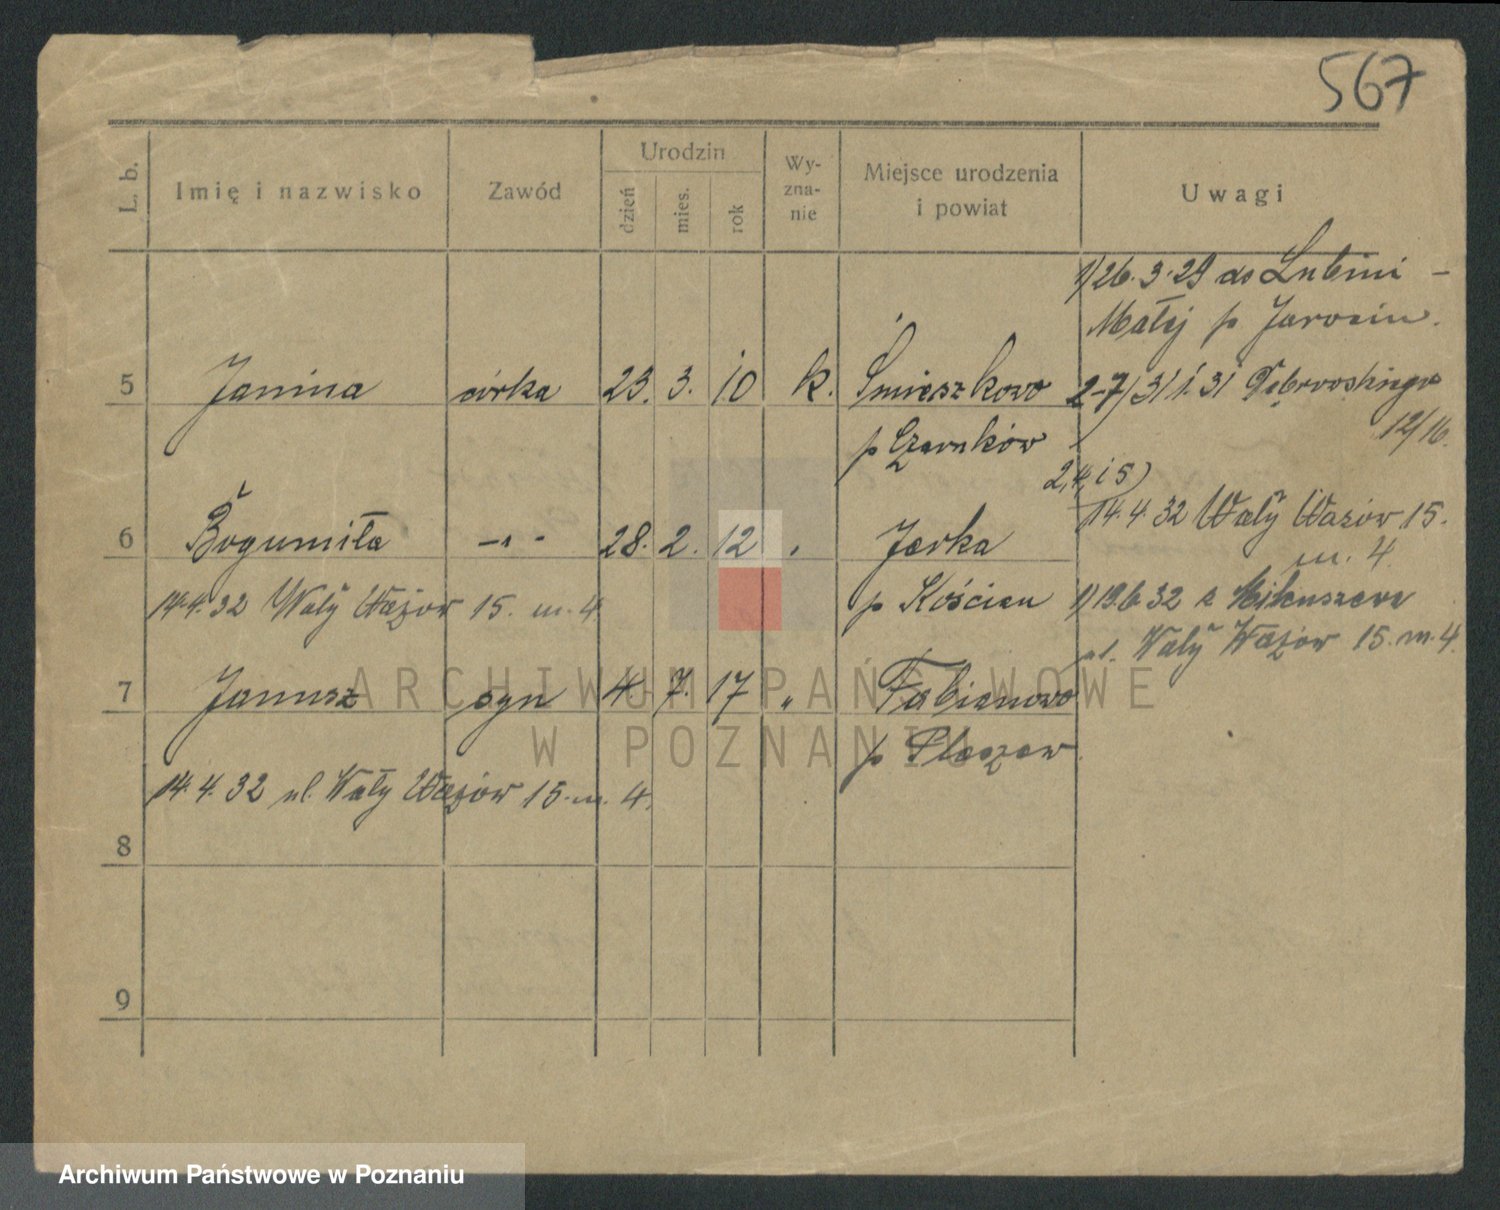 567
L. b. Imię i nazwisko Zawód Urodzin dzień mies. rok Wy-zna-nie Miejsce urodzenia i powiat Uwagi
1) 26.3.29 do Lubini -
Małej p Jarocin.
5 Janina córka 23. 3. 10 k. Śmieszkowo
2-7) 31.1.31 Dąbrowskiego
12/16.
p Czarnków
2, 4, i 5)
14.4.32 Wały Wazów 15.
m. 4
6 Bogumiła -"- 28. 2. 12 " Jerka
14.4.32 Wały Wazów 15. m. 4
p Kościan
1) 19.6.32 z
ul. Wały Wazów 15. m. 4.
7 Janusz syn 4. 7. 17 " Fabianowo
p Pleszew
14.4.32 ul. Wały Wazów 15. m. 4.
8
9
ARCHIWUM PAŃSTWOWE
W POZNANIU
Archiwum Państwowe w Poznaniu